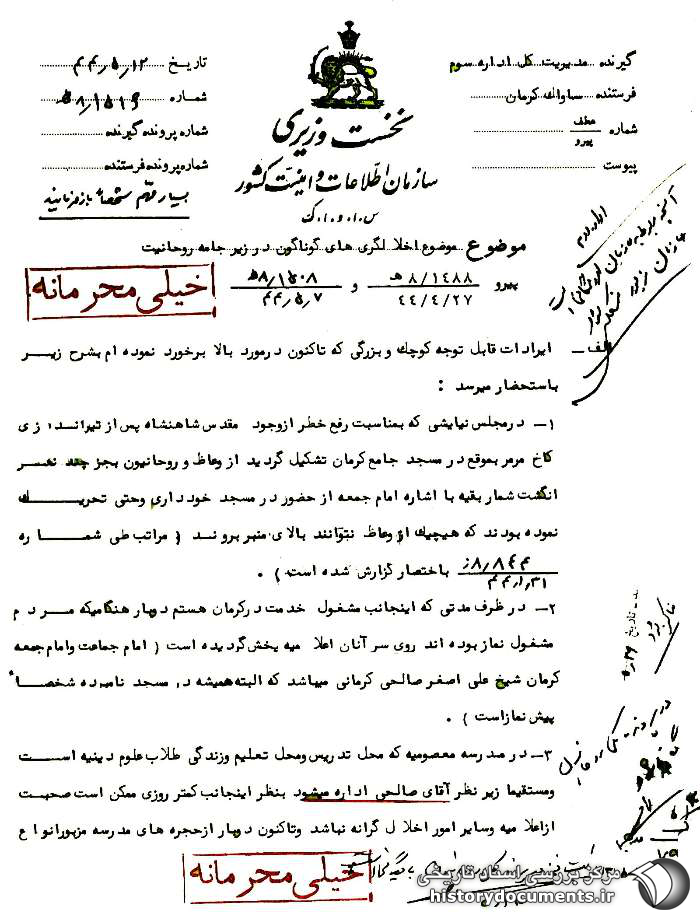 گیرنده مدیریت کل اداره سوم
فرستنده ساواک کرمان
شماره عطف
پیرو
پیوست
نخست وزیری
سازمان اطلاعات و امنیت کشور
س.ا.و.ا.ک
تاریخ ۴۴٫۵٫۱۲
شماره
شماره پرونده گیرنده
شماره پرونده فرستنده
موضوع موضوع اخلالگری های گوناگون در زیر جامه روحانیت
پیرو ۸/۱۴۸۸ هـ و ۸٫۱۵۰۸ هـ
۴۴/۴/۲۷ ۴۴٫۵٫۷
خیلی محرمانه
الف ـ ایرادات قابل توجه کوچک و بزرگی که تاکنون در مورد بالا برخورد نموده ام بشرح زیر
باستحضار میرسد :
۱ـ در مجلس نیایشی که بمناسبت رفع خطر از وجود مقدس شاهنشاه پس از تیراندازی
کاخ مرمر بموقع در مسجد جامع کرمان تشکیل گردید از وعاظ و روحانیون بجز چند نفر
انگشت شمار بقیه با اشاره امام جمعه از حضور در مسجد خودداری وحتی تحریک
نموده بودند که هیچیک از وعاظ نتوانند بالای منبر بروند ( مراتب طی شماره
۸٫۸۴۴ز
۴۴٫۱٫۳۱
باختصار گزارش شده است ) .
۲ـ در ظرف مدتی که اینجانب مشغول خدمت در کرمان هستم دوبار هنگامیکه مردم
مشغول نماز بوده اند روی سر آنان اعلامیه پخش گردیده است ( امام جماعت وامام جمعه
کرمان شیخ علی اصغر صالحی کرمانی میباشد که البته همیشه در مسجد نامبرده شخصاً
پیش نماز است ) .
۳ـ در مدرسه معصومیه که محل تدریس ومحل تعلیم وزندگی طلاب علوم دینیه است
ومستقیما زیر نظر آقای صالحی اداره میشود بنظر اینجانب کمتر روزی ممکن است صحبت
از اعلامیه وسایر امور اخلالگرانه نباشد وتاکنون دوبار از حجره های مدرسه مزبور انواع
خیلی محرمانه
مرکز بررسی اسناد تاریخی
historydocuments.ir